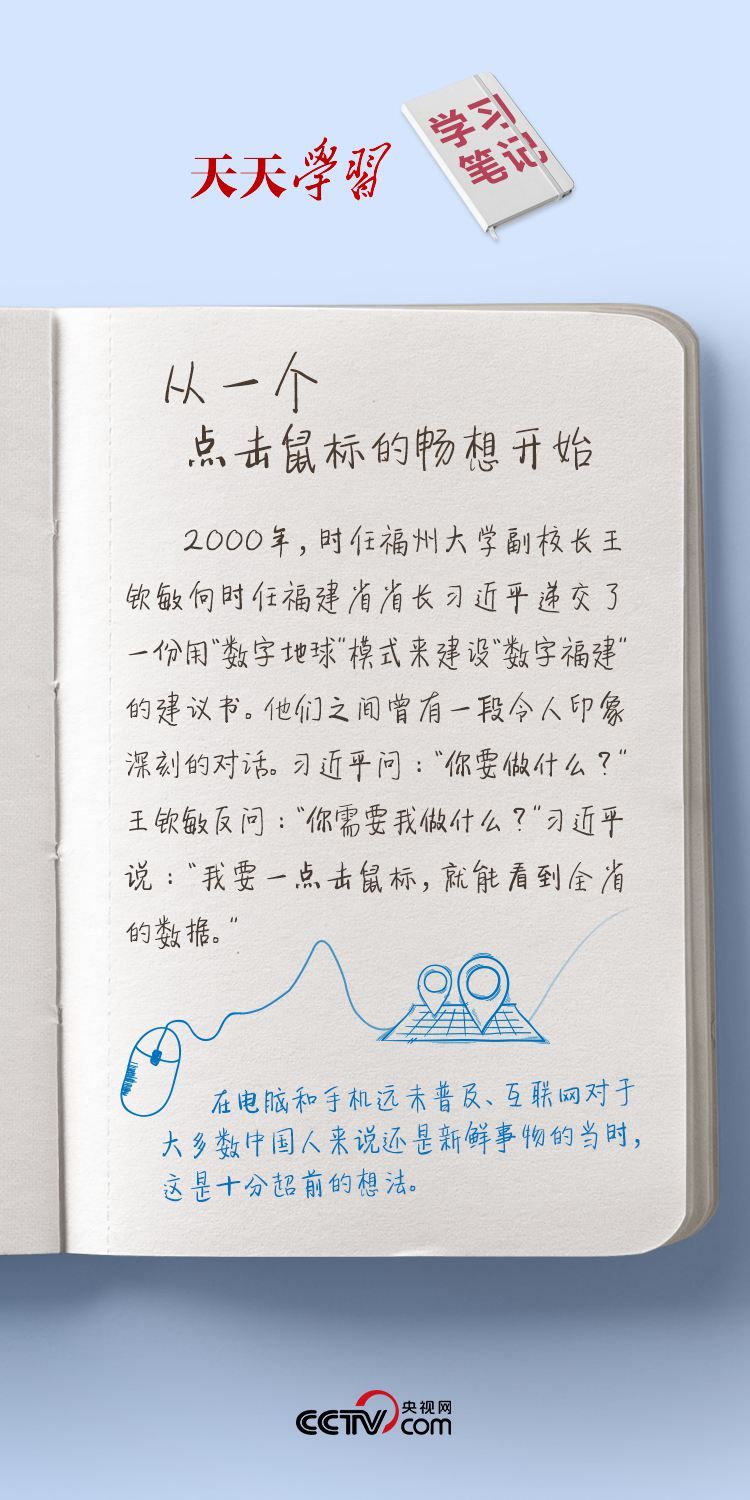 天天學習
学习
笔记
从一个
点击鼠标的畅想开始
2000年，时任福州大学副校长王
钦敏向时任福建省省长习近平递交了
一份用“数字地球”模式来建设“数字福建”
的建议书。他们之间曾有一段令人印象
深刻的对话。习近平问：“你要做什么？”
王钦敏反问：“你需要我做什么？”习近平
说：“我要一点击鼠标，就能看到全省
的数据。”
在电脑和手机远未普及、互联网对于
大多数中国人来说还是新鲜事物的当时，
这是十分超前的想法。
CCTV.com 央视网